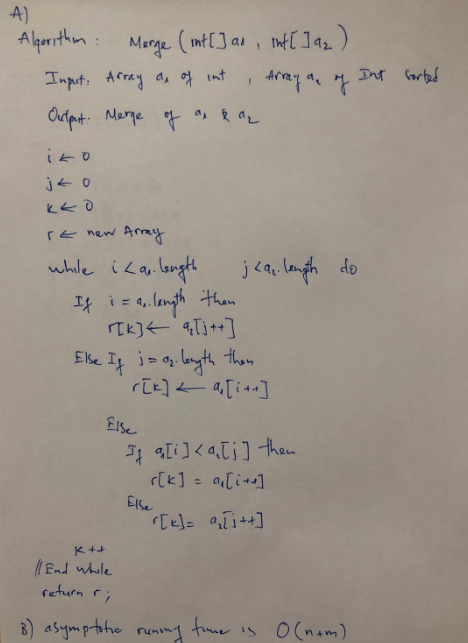 A)
Algorithm : Merge (int[] a1 , int[] a2)
Input: Array a1 of int , Array a2 of Int sorted
Output: Merge of a1 & a2
i ← 0
j ← 0
k ← 0
r ← new Array
while i < a1.length j < a2.length do
If i = a1.length then
r[k] ← a2[j++]
Else If j = a2.length then
r[k] ← a1[i++]
Else
If a1[i] < a2[j] then
r[k] = a1[i++]
Else
r[k] = a2[j++]
k++
//End While
return r;
B) asymptotic runing time is O(n+m)